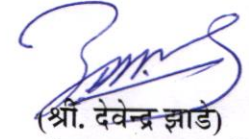 (श्री. देवेन्द्र झाडे)